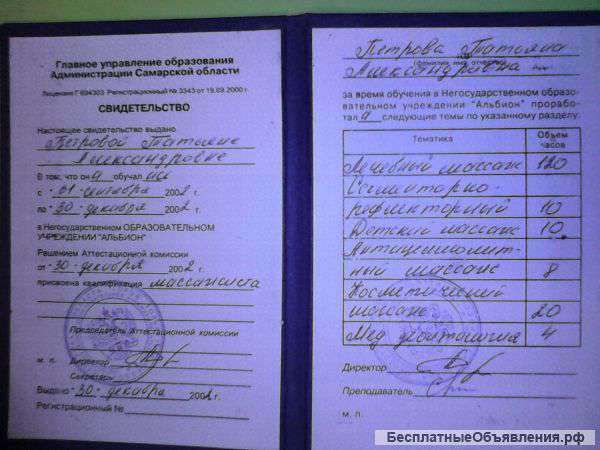 Главное управление образования
Администрации Самарской области
Лицензия Г 694303 Регистрационный № 3343 от 19.09.2000 г.
СВИДЕТЕЛЬСТВО
Настоящее свидетельство выдано
Петровой Татьяне
Александровне
В том, что он а обучал ась
с 01 сентября 2002 г.
по 30 декабря 2002 г.
в Негосударственном ОБРАЗОВАТЕЛЬНОМ
УЧРЕЖДЕНИИ "АЛЬБИОН"
Решением Аттестационной комиссии
от 30 декабря 2002 г.
присвоена квалификация массажиста
Председатель Аттестационной комиссии
м. п. Директор
Секретарь
Выдано 30 декабря 2002 г.
Регистрационный №
Петрова Татьяна
(фамилия, имя, отчество)
Александровна
за время обучения в Негосударственном образо-
вательном учреждении "Альбион" прорабо-
тал а следующие темы по указанному разделу:
Тематика Объем часов
Лечебный массаж 120
Сегментарно-
рефлекторный 10
Детский массаж 10
Антицеллюлит-
ный массаж 8
Косметический
массаж 20
Мед. деонтология 4
Директор
Преподаватель
м. п.
БесплатныеОбъявления.рф